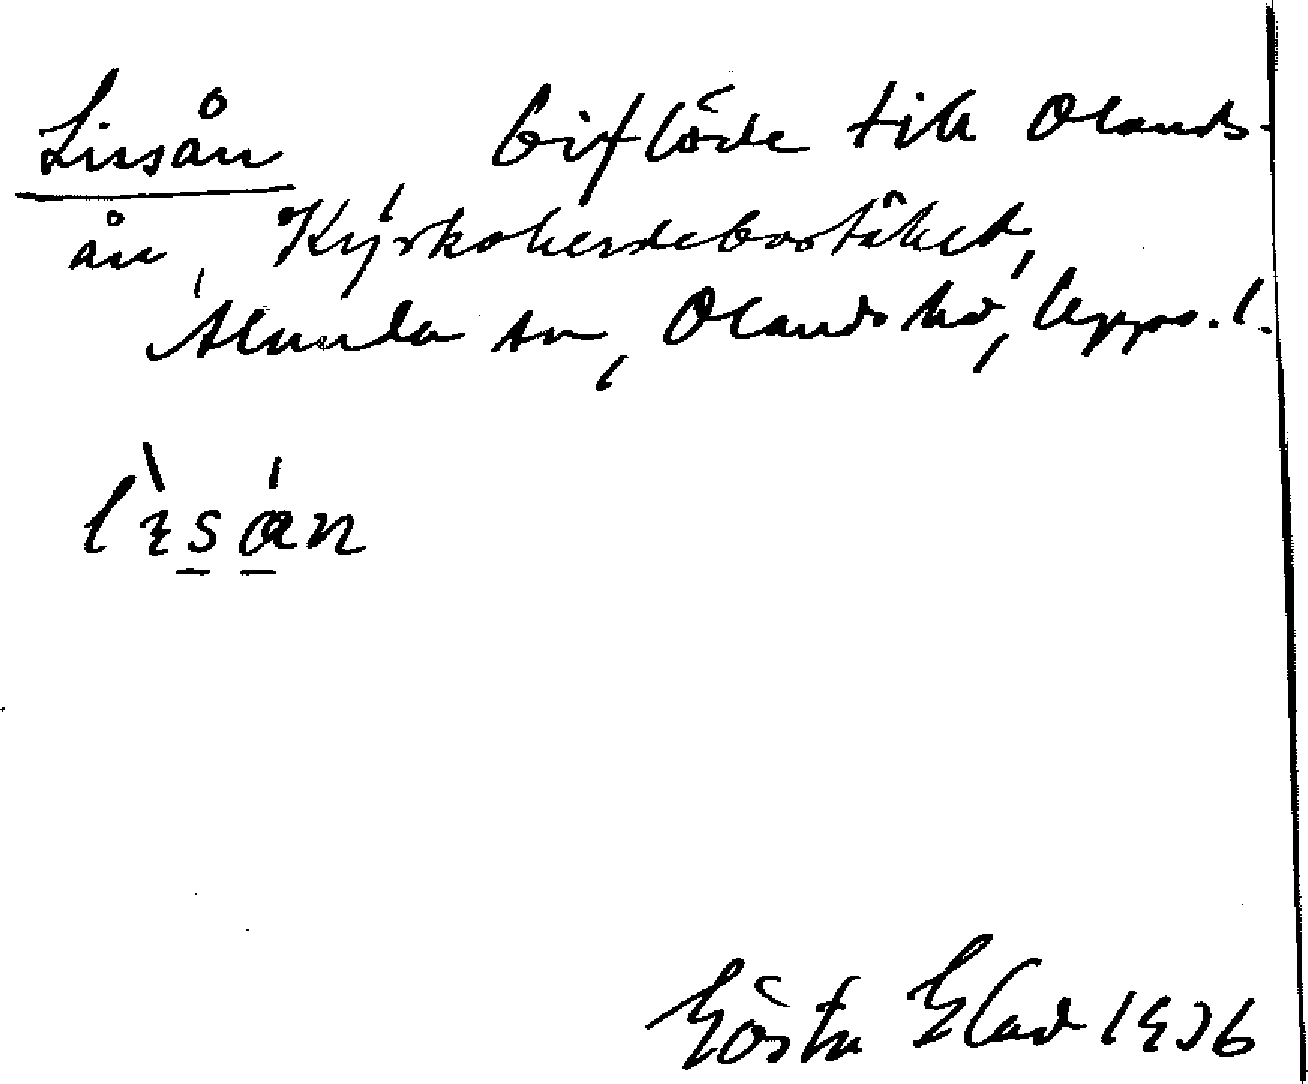 Lissån biflöde till Olands-
ån, Kyrkoherdebostället,
Alunda sn, Olands hd, Upps. l.
lìsán
Gösta Elad 1936